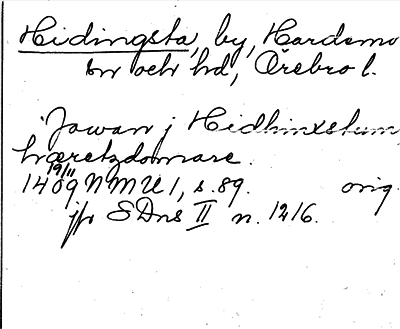 Hidingsta, by, Hardemo
sn och hd, Örebro l.
Jowan j Hidhinxstum
hæretzdomare.
19/11
1409 NMU 1, s. 89. orig.
jfr SDns II n. 1216.